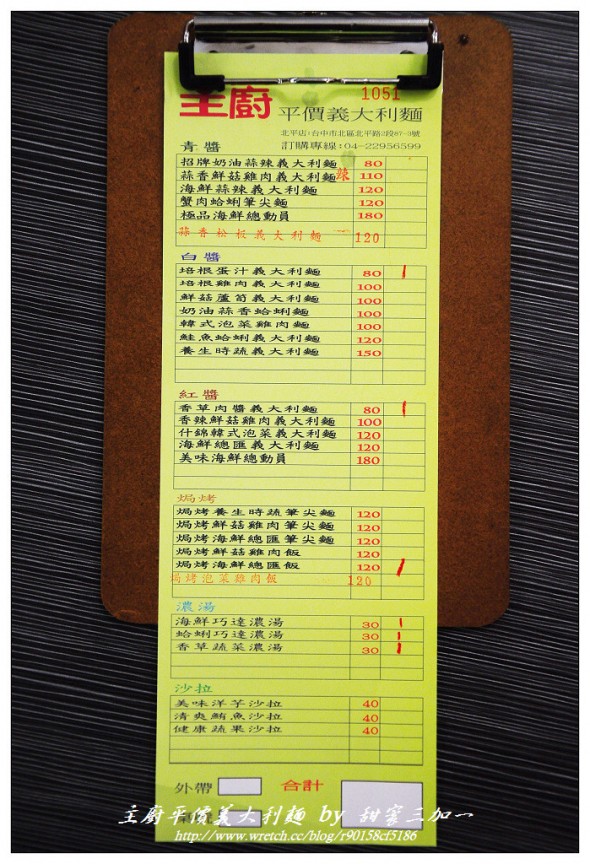 主廚 1051
平價義大利麵
北平店:台中市北區北平路2段87-9號
訂購專線:04-22956599
青醬
招牌奶油蒜辣義大利麵 80
蒜香鮮菇雞肉義大利麵辣 110
海鮮蒜辣義大利麵 120
蟹肉蛤蜊筆尖麵 120
極品海鮮總動員 180
蒜香松板義大利麵 120
白醬
培根蛋汁義大利麵 80
培根雞肉義大利麵 100
鮮菇蘆筍義大利麵 100
奶油蒜香蛤蜊麵 100
韓式泡菜雞肉麵 100
鮭魚蛤蜊義大利麵 120
養生時蔬義大利麵 150
紅醬
香草肉醬義大利麵 80
香辣鮮菇雞肉義大利麵 100
什錦韓式泡菜義大利麵 120
海鮮總匯義大利麵 120
美味海鮮總動員 180
焗烤
焗烤養生時蔬筆尖麵 120
焗烤鮮菇雞肉筆尖麵 120
焗烤海鮮總匯筆尖麵 120
焗烤鮮菇雞肉飯 120
焗烤海鮮總匯飯 120
焗烤泡菜雞肉飯 120
濃湯
海鮮巧達濃湯 30
蛤蜊巧達濃湯 30
香草蔬菜濃湯 30
沙拉
美味洋芋沙拉 40
清爽鮪魚沙拉 40
健康蔬果沙拉 40
外帶 合計
主廚平價義大利麵 by 甜蜜三加一
http://www.wretch.cc/blog/r90158cf5186